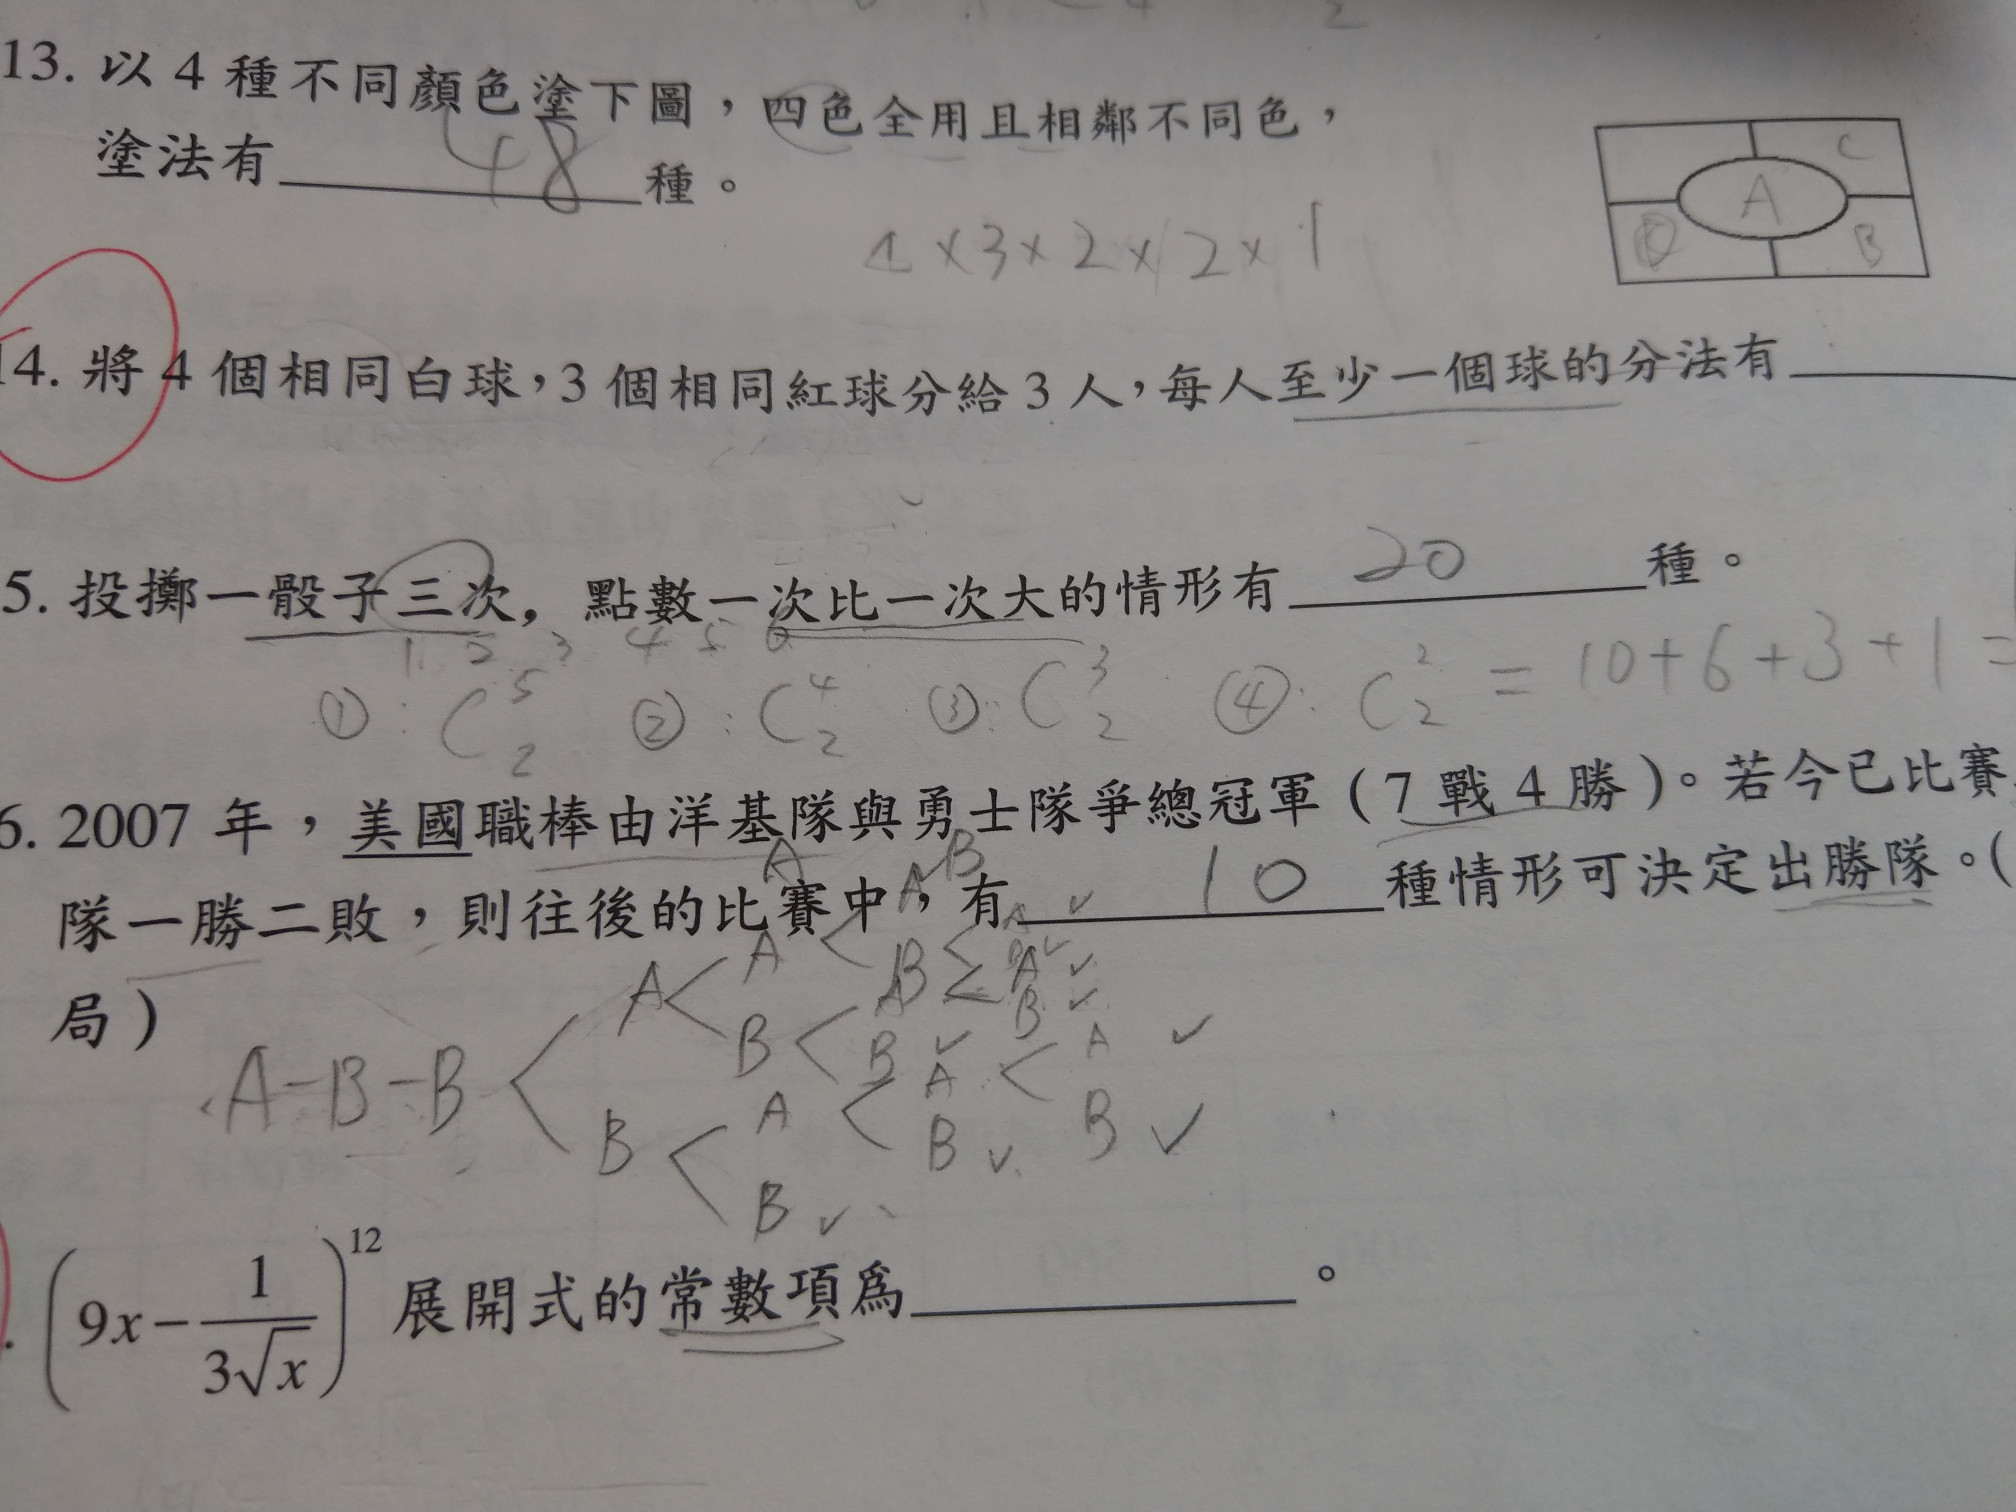 13. 以 4 種不同顏色塗下圖，四色全用且相鄰不同色，
塗法有 48 種。
C
A
B
4×3×2×2×1
14. 將 4 個相同白球，3 個相同紅球分給 3 人，每人至少一個球的分法有
5. 投擲一骰子三次，點數一次比一次大的情形有 20 種。
1. 2 3 4 5 6
①: C⁵₂ ②: C⁴₂ ③: C³₂ ④: C²₂ = 10+6+3+1=
6. 2007 年，美國職棒由洋基隊與勇士隊爭總冠軍（7 戰 4 勝）。若今已比賽
隊一勝二敗，則往後的比賽中，有 10 種情形可決定出勝隊。（
局）
A-B-B < A < A < A B
B < A B
B < A < A < A B
B
B
(9x − 1/(3√x))¹² 展開式的常數項為。